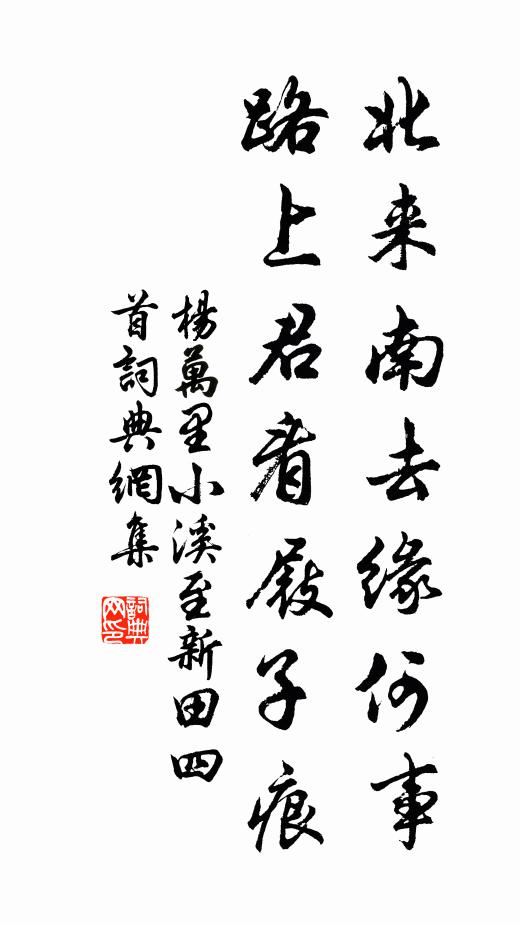 北来南去缘何事
路上君看屐子痕
楊萬里小溪至新田四
首詞典網集
詞典
网印